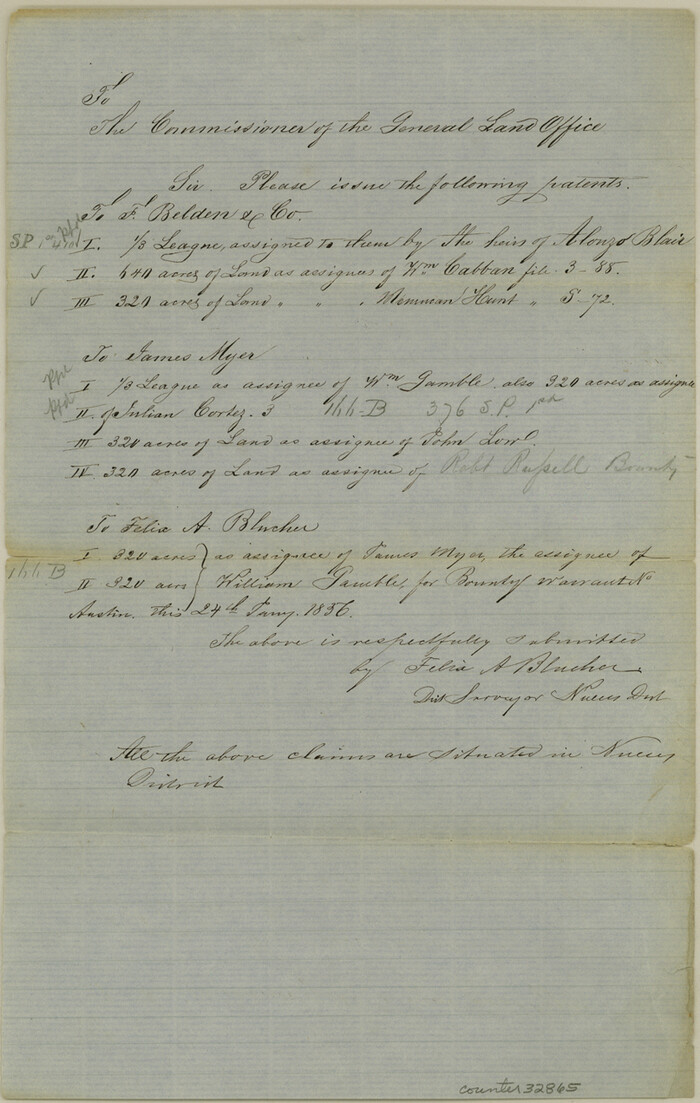 To
The Commissioner of the General Land Office
Sir. Please issue the following patents.
To F. Belden & Co.
S.P. 1st I. 1/3 League, assigned to them by the heirs of Alonzo Blair
✓ II. 640 acres of Land as assignees of Wm Cabban file 3-88.
✓ III 320 acres of Land " " " Memucan Hunt " 5-72.
To James Myer
I 1/3 League as assignee of Wm Gamble. also 320 acres as assignee
II of Julian Cortez. 3 166-B 376 S.P. 1st
III 320 acres of Land as assignee of John Lowe.
IV 320 acres of Land as assignee of Robt Russell Bounty
To Felix A. Blucher
I 320 acres } as assignee of James Myer, the assignee of
166 B II 320 acrs } William Gamble, for Bounty Warrant No
Austin. this 24th Jany. 1856.
The above is respectfully submitted
by Felix A Blucher
Dist Surveyor Nueces Dist
All the above claims are situated in Nueces
District
counter 32865